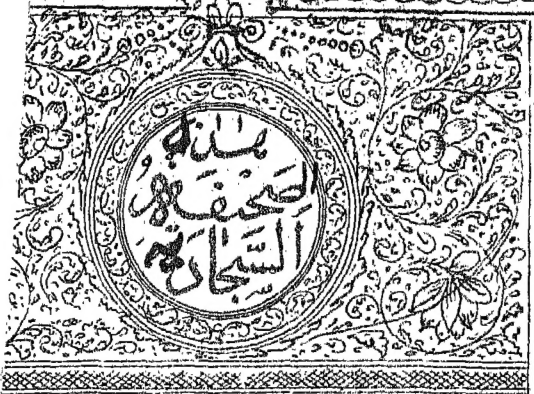 هذه
الصَّحِيفَةُ
السَّجَّادِيَّة